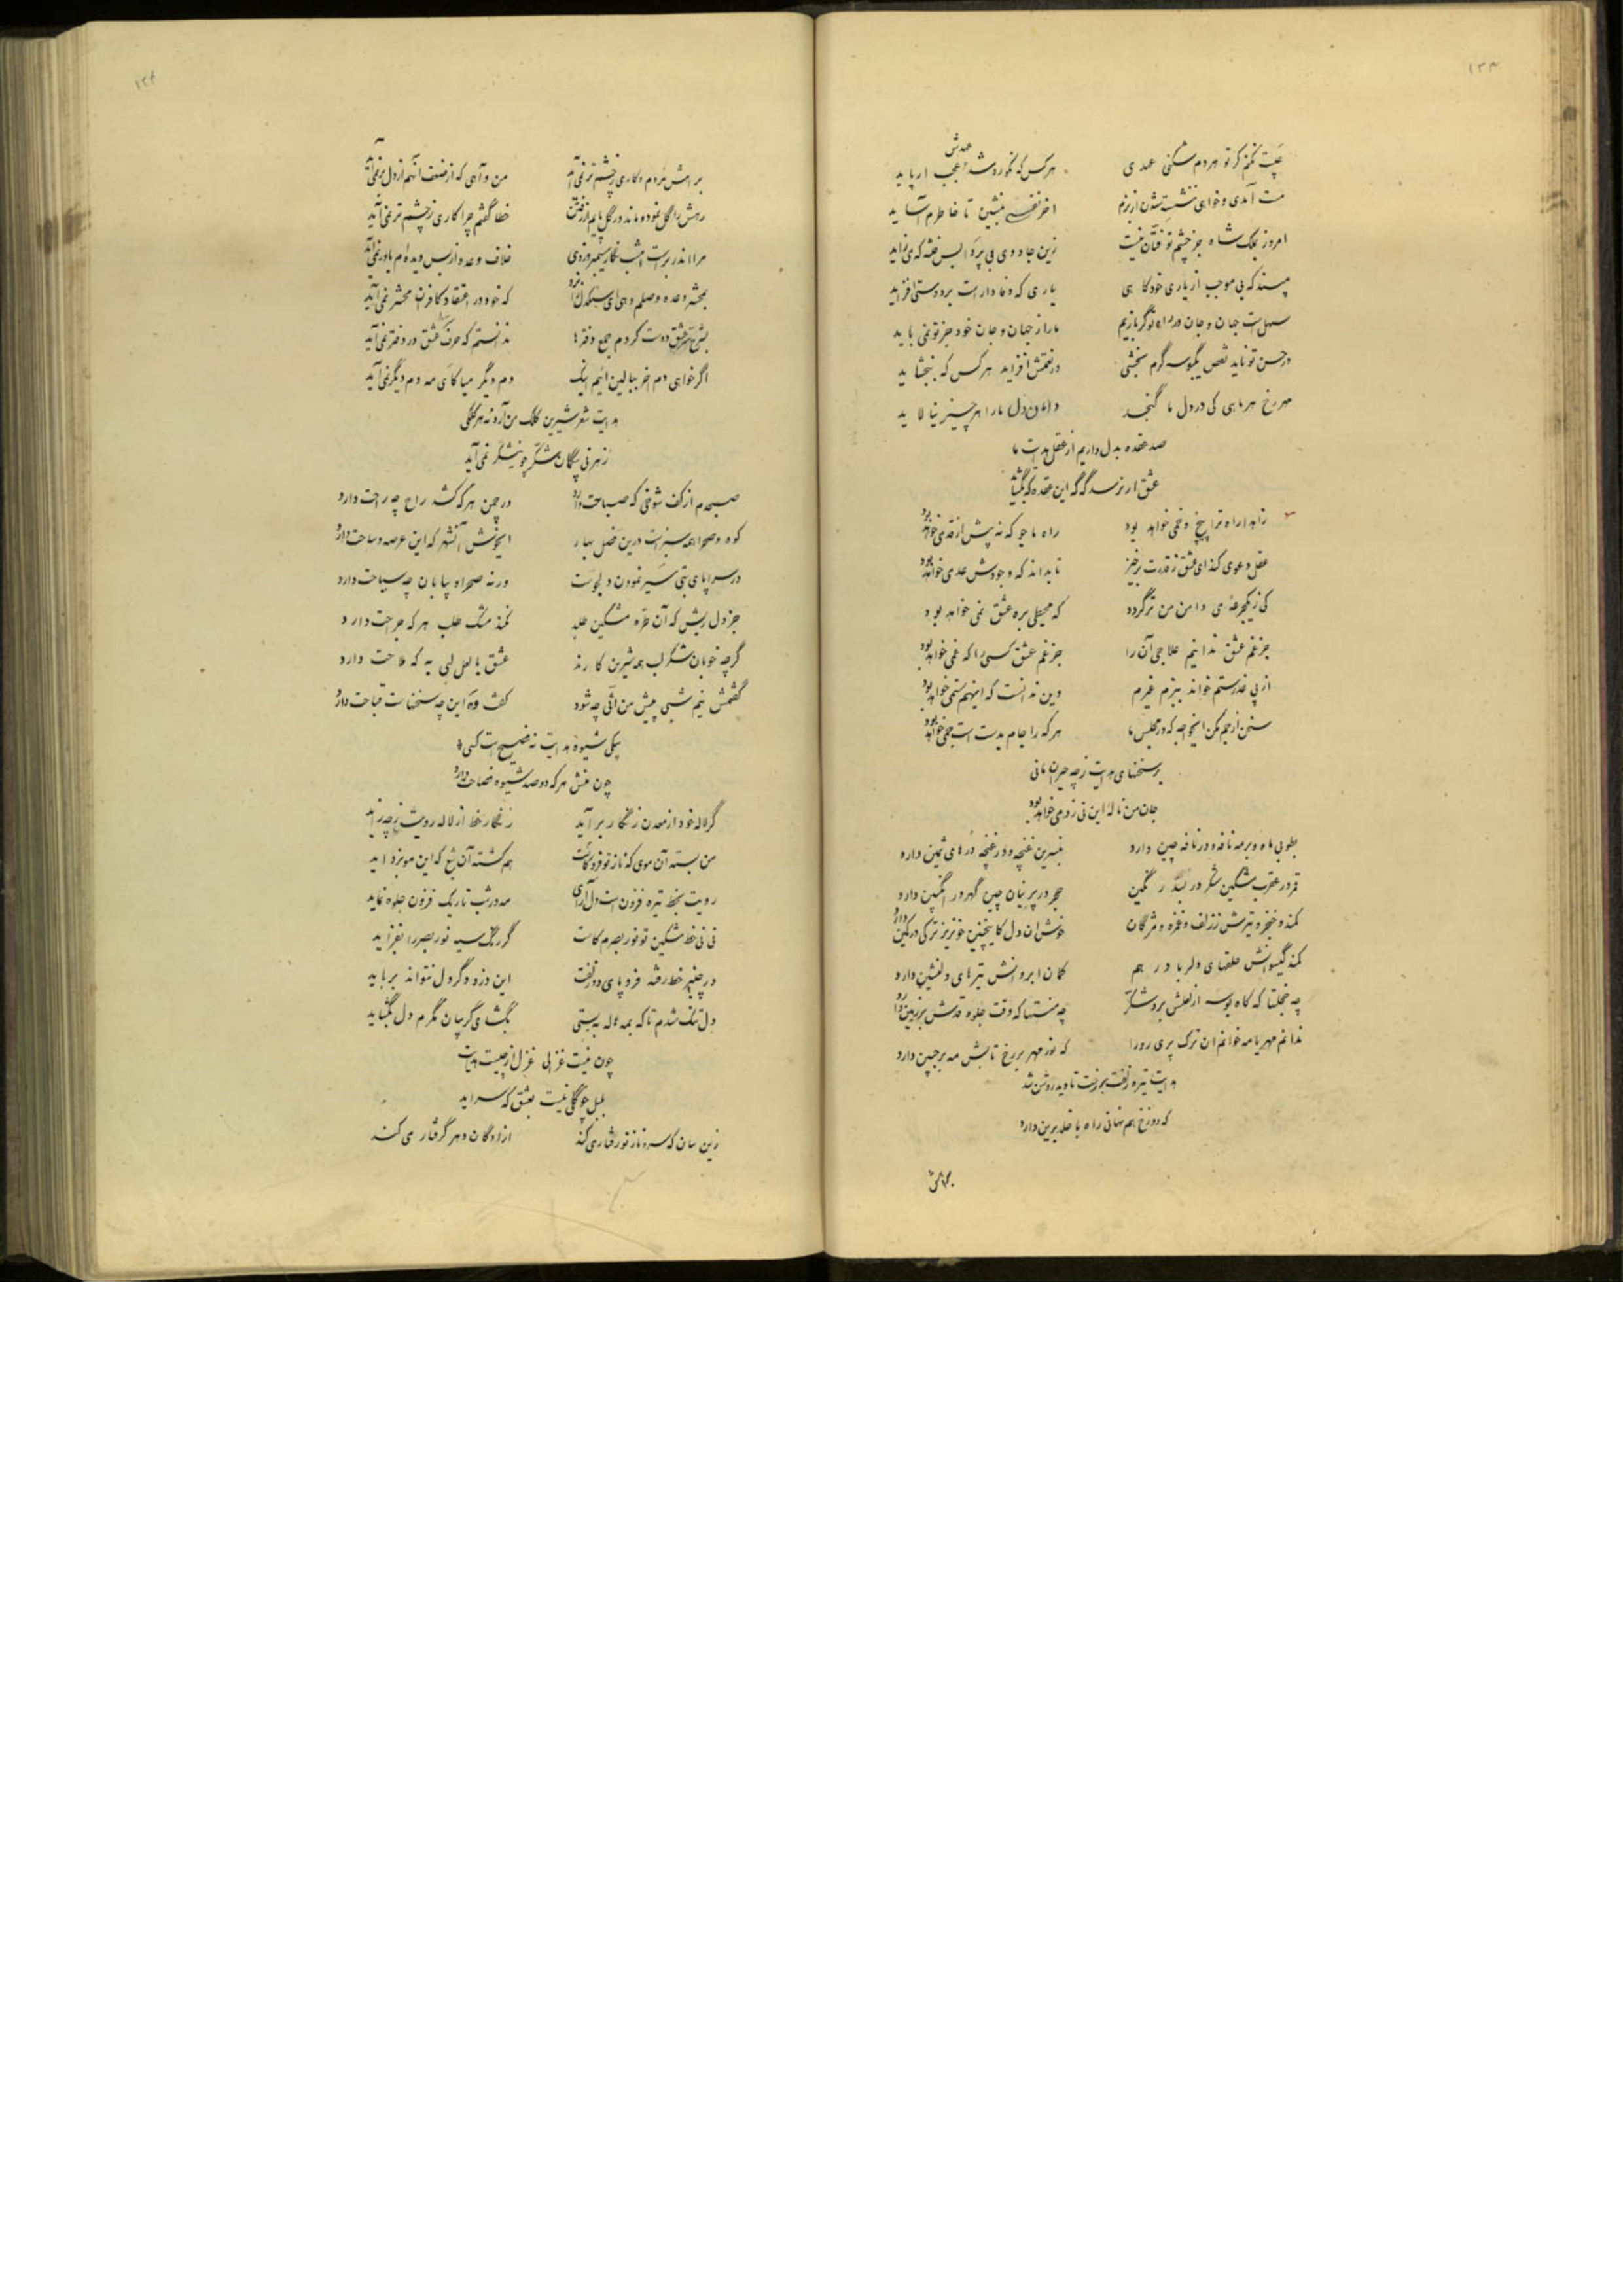 ۱۲۳
عیبت نکنم گر تو بهر دم شکنی عهدی هر کس که نکو روشد عهدش عجب ار پاید
مست آمدی و خواهی ننشست شدن از بزم آخر نفسی بنشین تا خاطرم آساید
امروز بملک شاه جز چشم تو فتان نیست زین جادوی بی پروا بس فتنه که می زاید
مپسند که بی موجب از یاری خود کاهی یاری که وفادار است بر دوستی افزاید
سهل است جهان و جان در راه تو گر بازیم ما را ز جهان و جان خود جز تو نمی باید
در حسن تو ناید نقص یک بوسه گرم بخشی در نعمتش افزاید هر کس که ببخشاید
مهر رخ هر ماهی کی در دل ما گنجد دامان دل ما را هر چیز نیالاید
صد عقده بدل داریم از عقل هدایت ما
عشق ار نرسد گه گه این عقده که بگشاید
زاهد ار راه ترا پیچ و خمی خواهد بود راه ما جو که نه بیش از قدمی خواهد بود
عقل دعوی کند ای عشق ز قدرت برخیز تا بداند که وجودش عدمی خواهد بود
کی ز یک جرعه می دامن من تر گردد که محیطی بره عشق نمی خواهد بود
جز غم عشق ندانیم علاجی آن را جز غم عشق کسی را که غمی خواهد بود
از پی عذر ستم خواند ببزم غیرم وین ندانست که اینهم ستمی خواهد بود
سخن از جم مکن ایخواجه که در مجلس ما هر که را جام بدست است جمی خواهد بود
بر سخنهای هدایت ز چه حیران مانی
جان من ناله این نی ز دمی خواهد بود
بطوبی ماه و بر مه نافه و در نافه چین دارد بنسرین غنچه و در غنچه درهای ثمین دارد
قمر در عقرب مشکین شکر در بسد رنگین حجر در پرنیان چین گهر در انگبین دارد
کمند و خنجر و تیرش ز زلف و غمزه و مژگان خوش آن دل کاینچنین خونریز ترکی در کمین دارد
کمند گیسوانش حلقهای دلربا در هم کمان ابروانش تیرهای دلنشین دارد
چه خجلتها که گاه بوسه از لعلش برد شکر چه منتها که وقت جلوه قدش بر زمین دارد
ندانم مهر یا مه خوانم آن ترک پری رو را که نور مهر بر رخ تابش مه بر جبین دارد
هدایت تیره زلفت بر رخت تا دید روشن شد
که دوزخ هم نهانی راه با خلد برین دارد
براهش
۱۲۴
براهش مردم و کاری ز چشم تر نمی آید من و آهی که از ضعف آنهم از دل بر نمی آید
رهش را گل نمود و ماند در گل پایم از رفتن خطا گفتم چرا کاری ز چشم تر نمی آید
مرا اندر بر است امشب نگار خلاف وعده از بس دیده ام باور نمی آید
بمحشر وعده وصلم دهی ای سنگدل که خود در اعتقاد کافرت محشر نمی آید
بشرح عشق دوست کردم جمع دفترها ندانستم که حرف عشق در دفتر نمی آید
اگر خواهی دم آخر ببالین آئیم اینک دم دیگر میا کای مه دم دیگر نمی آید
هدایت شعر شیرین کلک من آرد نه هر کلکی
ز هر نی بیگمان شکر چو نیشکر نمی آید
صبحدم از کف شوخی که صباحت دارد در چمن هر که کشد راح چه راحت دارد
کوه و صحرا همه سبز است درین فصل بهار ایخوش آنشهر که این عرصه و ساحت دارد
در سراپای بتی سیر نمودن دلجوست ورنه صحرا و بیابان چه سیاحت دارد
جز دل ریش که آن طره مشکین طلبد نکند مشک طلب هر که جراحت دارد
گرچه خوبان شکر لب همه شیرین کارند عشق با لعل لبی به که ملاحت دارد
گفتمش نیم شبی پیش من آئی چه شود گفت وه این چه سخنهاست قباحت دارد
بیکی شیوه هدایت نه فصیح است کسی
چون منش هر که دو صد شیوه فصاحت دارد
گر لاله خود از معدن زنگار بر آید زنگار خط از لاله رویت ز چه زاید
من بسته آن موی که ناز تو فرو کاست هم کشته آن تیغ که این مو بزداید
رویت بخط تیره فزون است دل آرای مه در شب تاریک فزون جلوه نماید
نی نی خط مشکین تو نور بصرم کاست گر رنگ سیه نور بصر را بفزاید
در چنبر خط رفته فرو پای دو زلفت این دزد دگر دل نتواند برباید
دل تنگ شدم تا که بمه هاله ببستی بگشای گریبان مگرم دل بگشاید
چون نیست غزالی غزل از چیست هدایت
بلبل چو گلی نیست بعشق که سراید
زین سان که سرو ناز تو رفتار می کند آزادگان دهر گرفتار می کند